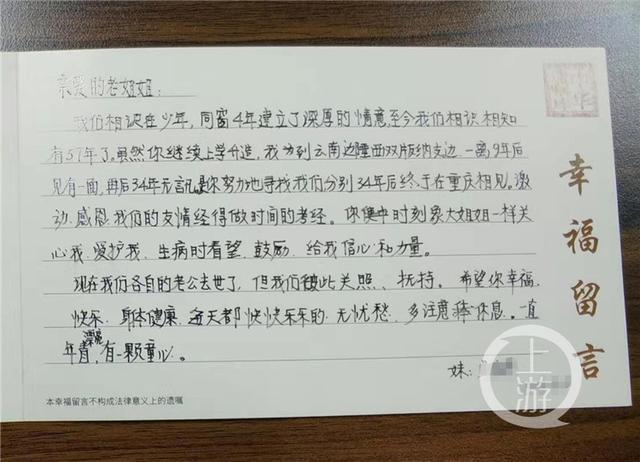 亲爱的老姐姐：
我们相识在少年，同窗4年建立了深厚的情意至今我们相识相知
有57年了。虽然你继续上学升造，我分到云南边陲西双版纳支边，一离9年后
见有一面，再后34年无音讯是你努力地寻找我们分别34年后终于在重庆相见。激
动、感恩、我们的友情经得做时间的考经。你集中时刻象大姐姐一样关
心我、爱护我、生病时看望、鼓励、给我信心和力量。
现在我们各自的老公去世了，但我们彼此关照、扶持。希望你幸福、
快乐、身体健康、每天都快快乐乐的、无忧愁、多注意休息。一直
年青，有一颗童心。
妹：
本幸福留言不构成法律意义上的遗嘱
幸福留言
上游